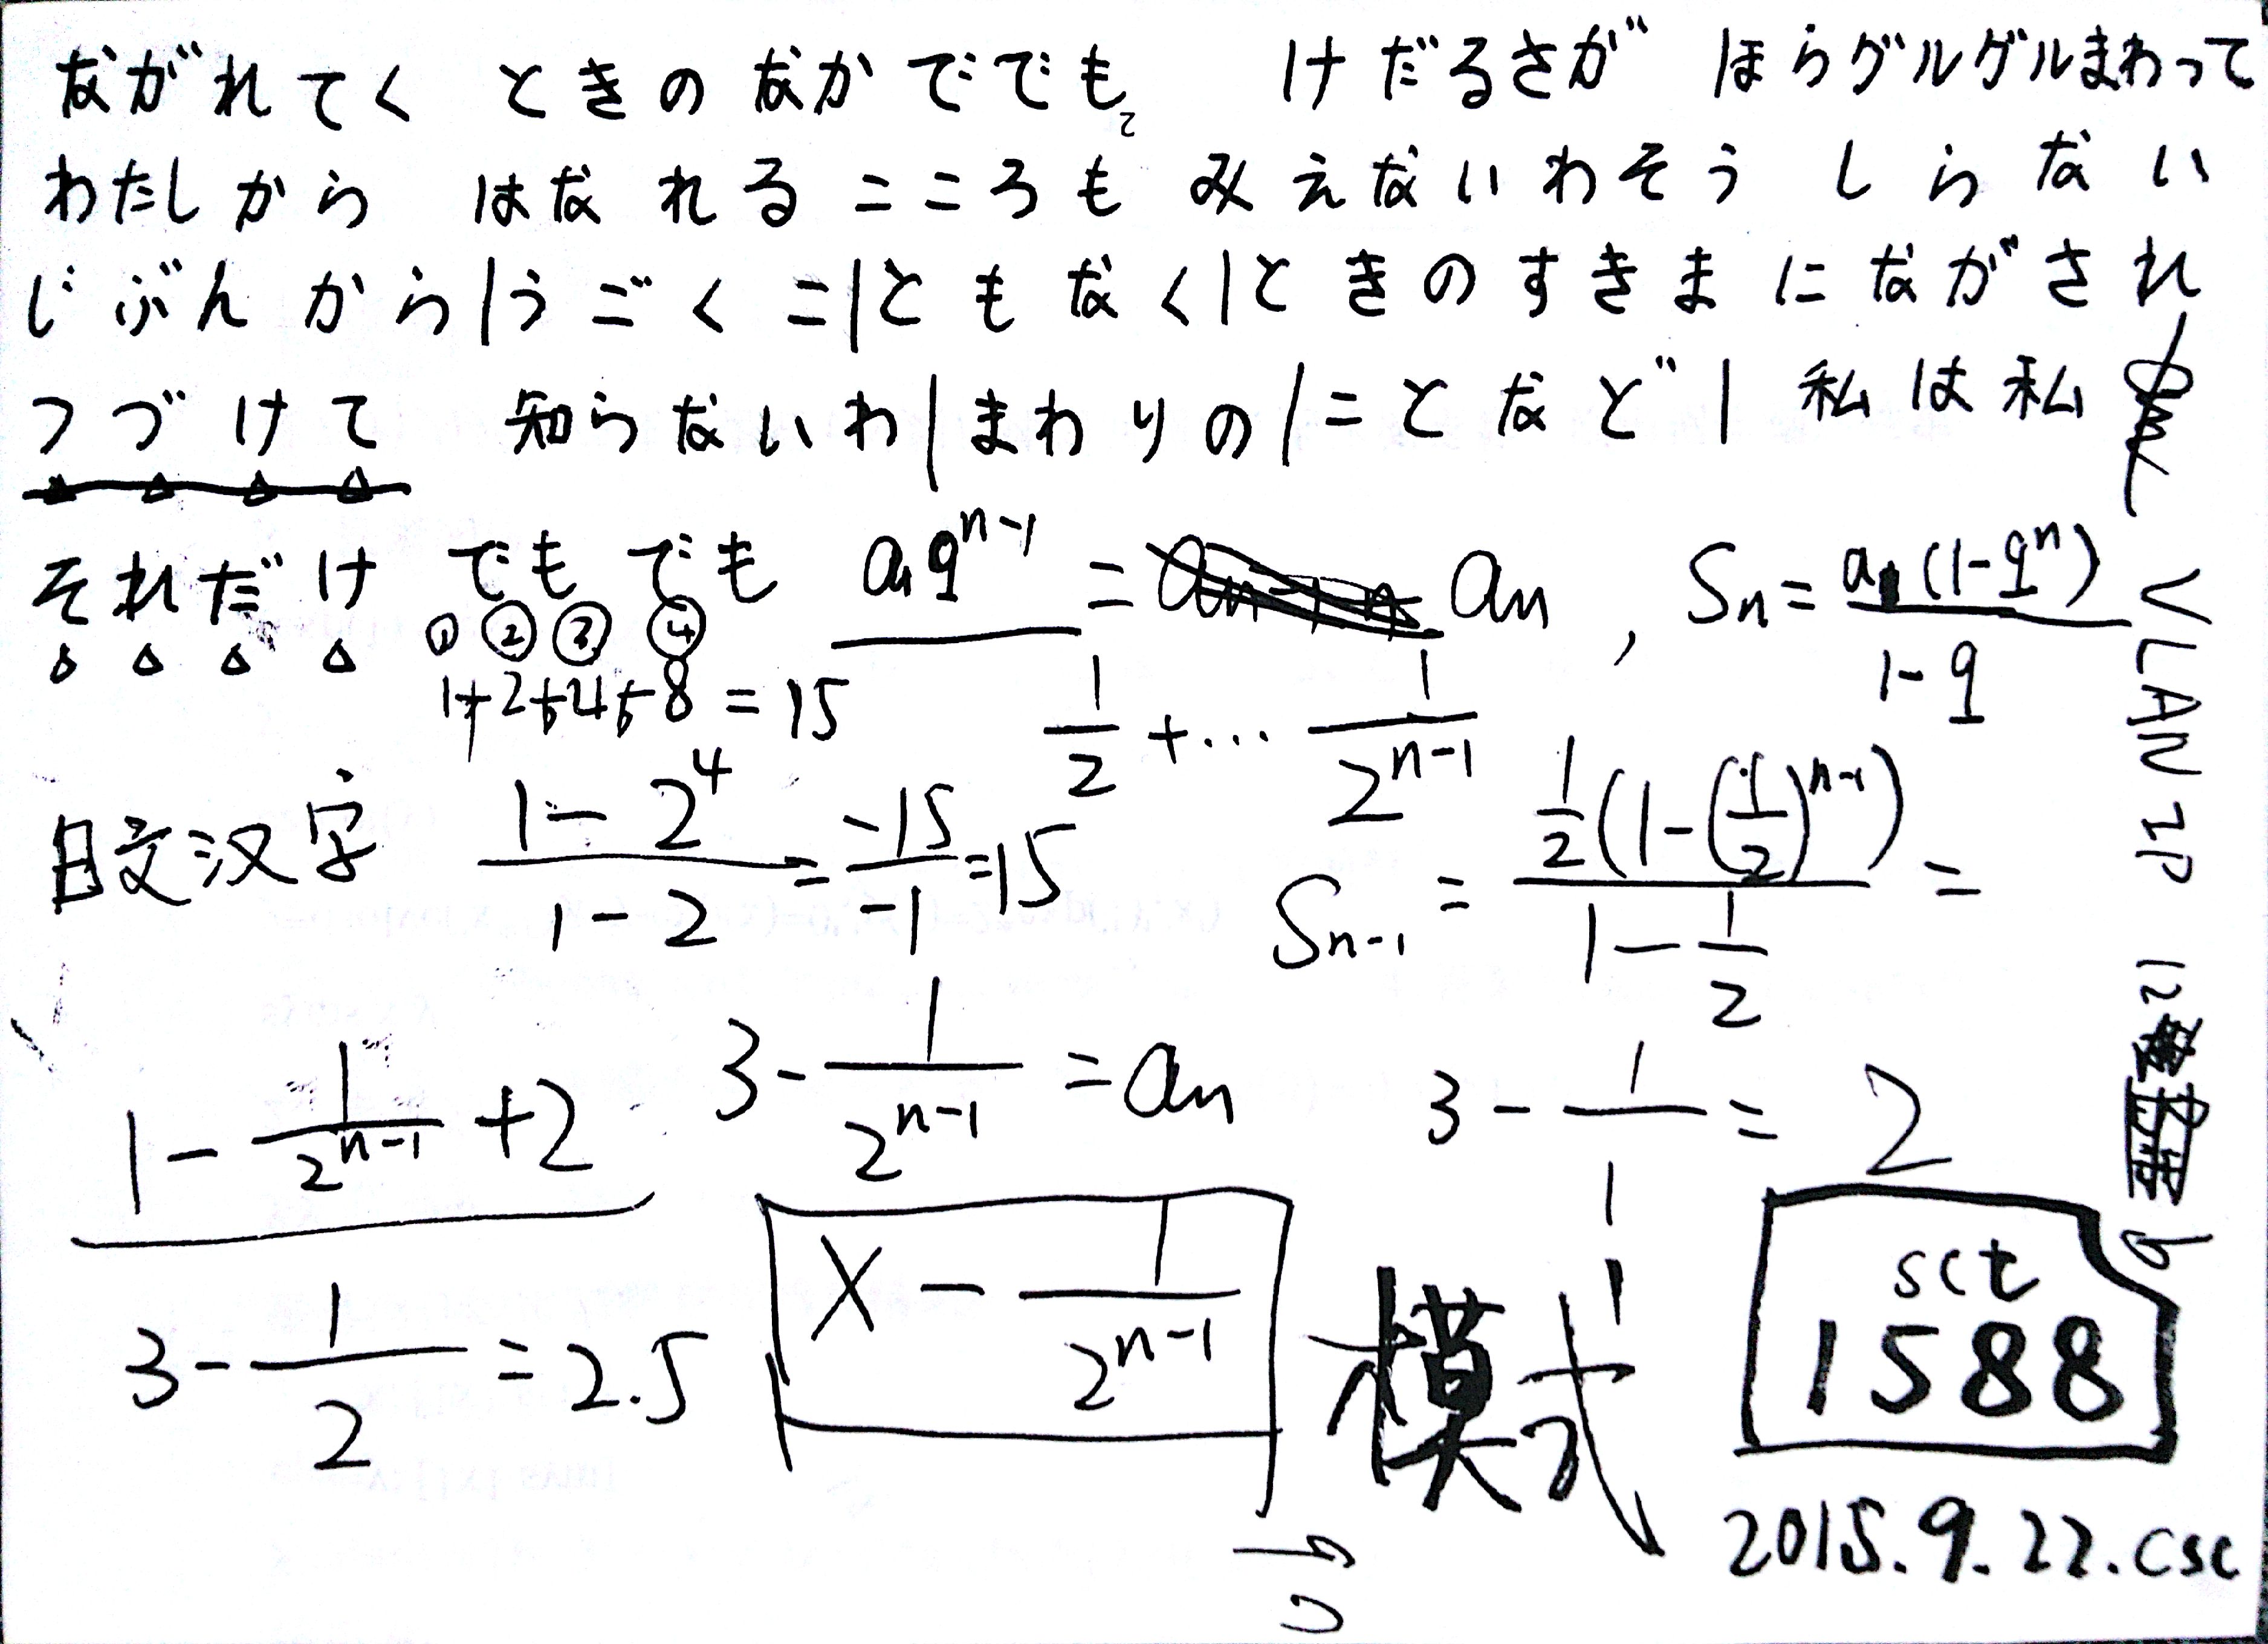 ながれてく ときの なかででも。 けだるさが ほらグルグルまわって
わたしから はなれるこころも みえないわそう しらない
じぶんから|うごくこ|ともなく|ときのすきまにながされ
つづけて 知らないわ|まわりの|ことなど| 私は私
それだけ でも でも a₁qⁿ⁻¹ = aₙ , Sₙ = a₁(1-qⁿ)/(1-q)
① ② ③ ④
1+2+4+8=15
1/2 + … 1/2ⁿ⁻¹
日文汉字 (1-2⁴)/(1-2) = -15/-1 = 15
Sₙ₋₁ = 1/2(1-(1/2)ⁿ⁻¹)/(1-1/2) =
1 - 1/2ⁿ⁻¹ + 2
3 - 1/2ⁿ⁻¹ = aₙ
3 - 1/1 = 2
3 - 1/2 = 2.5
X - 1/2ⁿ⁻¹
模式
sct
1588
2015.9.22.csc